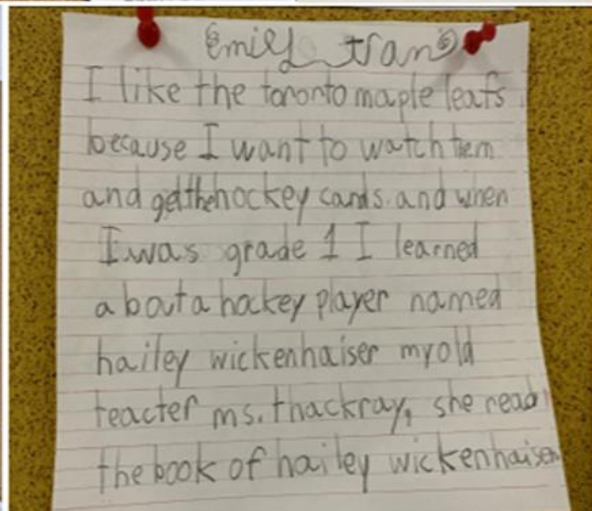 Emily tran
I like the toronto maple leafs
because I want to watch them
and get the hockey cards. and when
I was grade 1 I learned
a bout a hockey player named
hailey wickenhaiser my old
teacter ms. thackray, she read
the book of hailey wickenhaiser